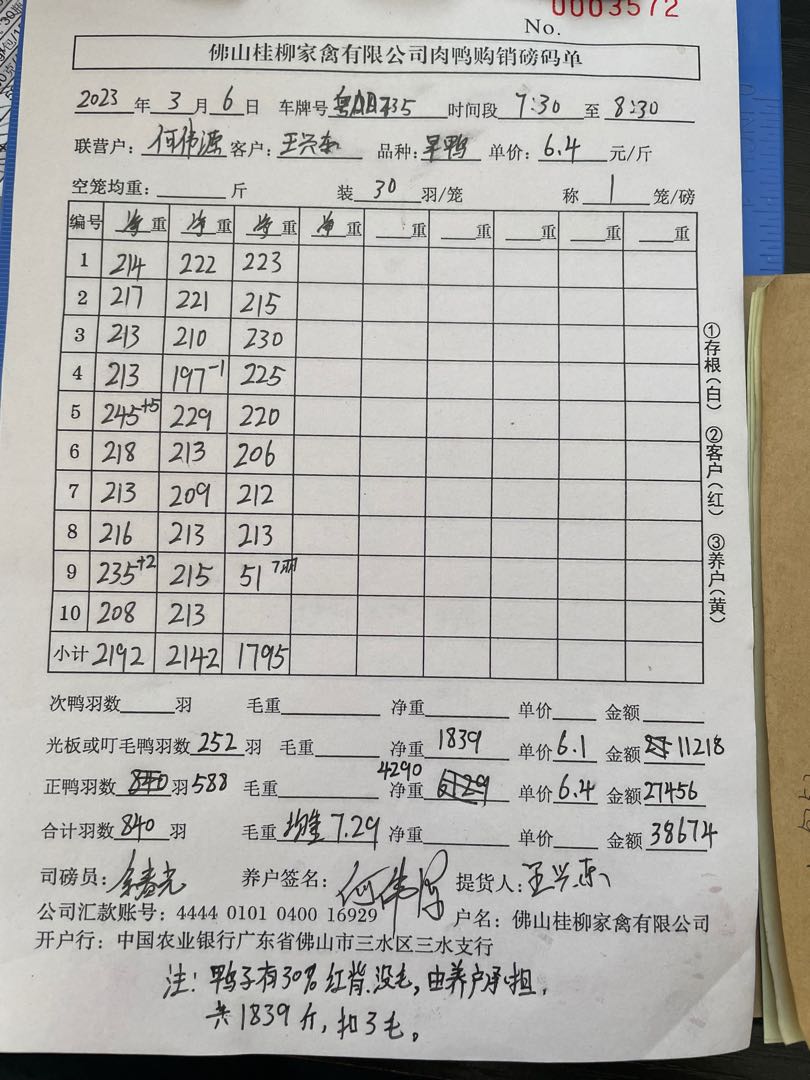 0003572
No.
佛山桂柳家禽有限公司肉鸭购销磅码单
2023年3月6日 车牌号 时间段 7:30 至 8:30
联营户：何伟源 客户：王兴东 品种：旱鸭 单价：6.4 元/斤
空笼均重：____斤 装 30 羽/笼 称 1 笼/磅
编号 净重 净重 净重 净重 ____重 ____重 ____重 ____重
1 214 222 223
2 217 221 215
3 213 210 230
4 213 197-1 225
5 245+5 229 220
6 218 213 206
7 213 209 212
8 216 213 213
9 235+2 215 51 7羽
10 208 213
小计 2192 2142 1795
次鸭羽数____羽 毛重____ 净重____ 单价____ 金额____
光板或叮毛鸭羽数 252 羽 毛重____ 净重 1839 单价 6.1 金额 11218
正鸭羽数 840 羽 588 毛重____ 净重 4290 6129 单价 6.4 金额 27456
合计羽数 840 羽 毛重 均重 7.29 净重____ 单价____ 金额 38674
司磅员： 养户签名：何伟源 提货人：王兴东
公司汇款账号：4444 0101 0400 16929 户名：佛山桂柳家禽有限公司
开户行：中国农业银行广东省佛山市三水区三水支行
注：鸭子有30%红背.没毛，由养户承担，
共1839斤，扣3毛。
①存根(白) ②客户(红) ③养户(黄)